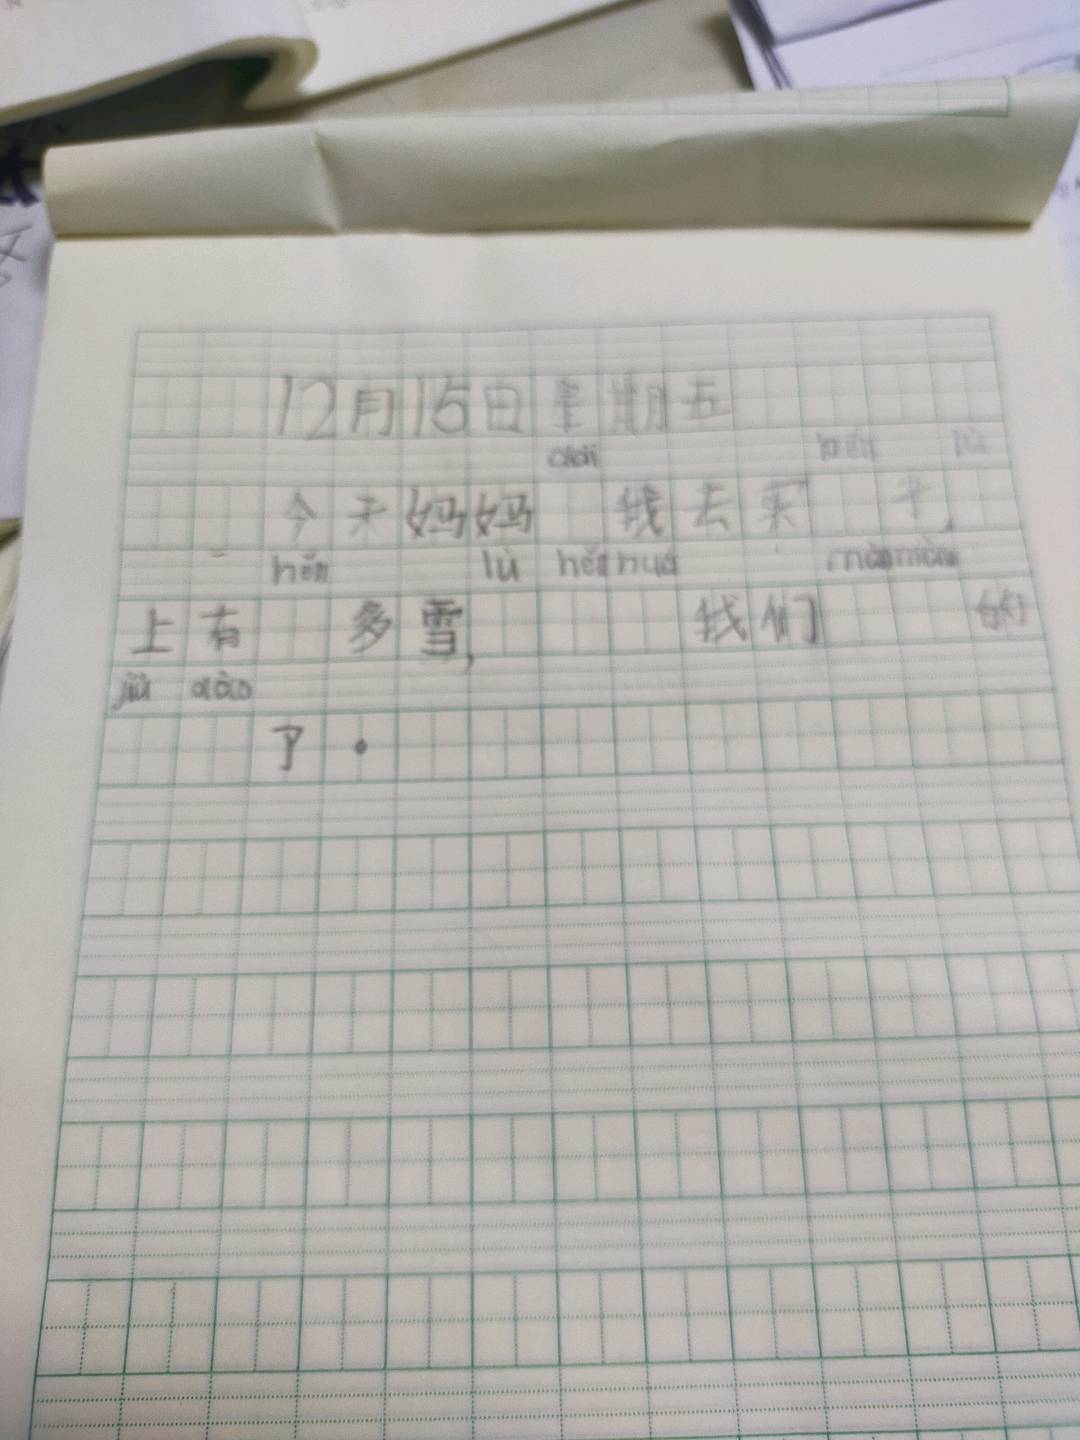 12月15日星期五
dài běn lù
今天妈妈 我去买 子,
hěn lù hěn huá màn màn
上有 多雪, 我们 的
jiù dào
了.